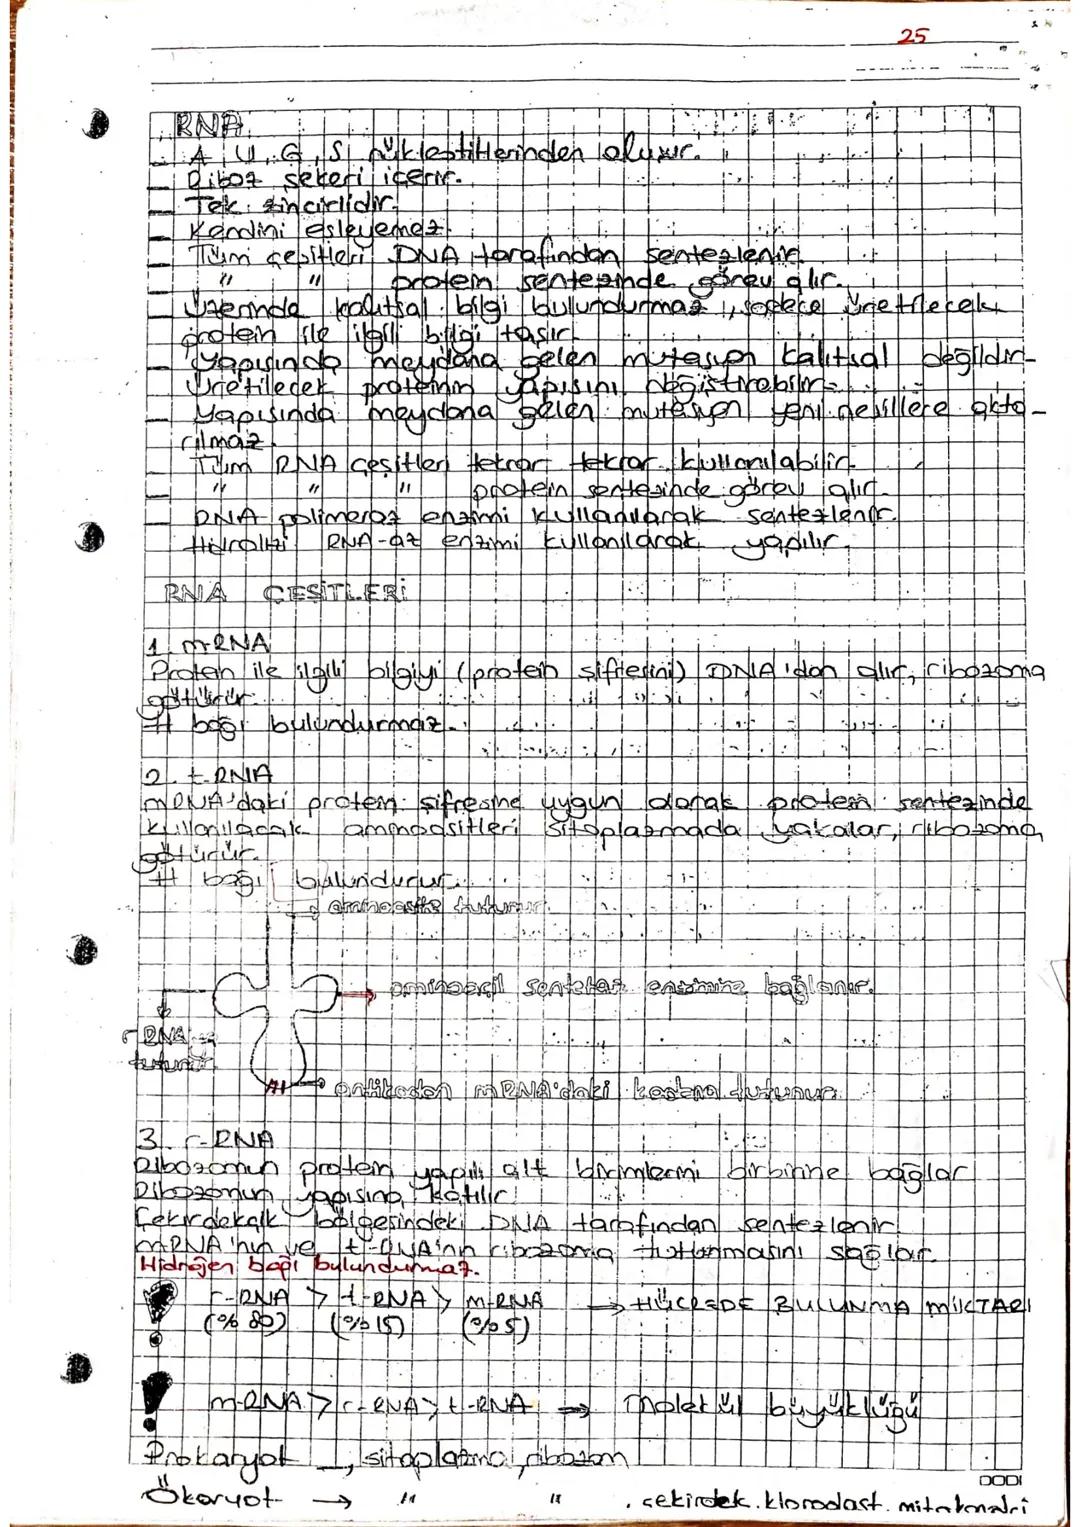 25
RNA
- A, U, G, S nükleotitlerinden oluşur.
- Riboz şekeri içerir.
- Tek zincirlidir.
- Kendini eşleyemez.
- Tüm çeşitleri DNA tarafından sentezlenir.
- " " protein sentezinde görev alır.
- Üzerinde kalıtsal bilgi bulundurmaz, sadece üretilecek
protein ile ilgili bilgi taşır.
- Yapısında meydana gelen mutasyon kalıtsal değildir.
Üretilecek proteinin yapısını değiştirebilir.
- Yapısında meydana gelen mutasyon yeni nesillere akta-
rılmaz.
- Tüm RNA çeşitleri tekrar tekrar kullanılabilir.
- " " " protein sentezinde görev alır.
- RNA polimeraz enzimi kullanılarak sentezlenir.
- Hidrolizi RNA-az enzimi kullanılarak yapılır.
RNA ÇEŞİTLERİ
1. m-RNA
Protein ile ilgili bilgiyi (protein şifresini) DNA'dan alır, ribozoma
götürür.
H bağı bulundurmaz.
2. t-RNA
mRNA'daki protein şifresine uygun olarak protein sentezinde
kullanılacak aminoasitleri sitoplazmada yakalar, ribozoma
götürür.
H bağı bulundurur.
→ aminoasite tutunur.
→ aminoaçil sentetaz enzimine bağlanır.
r-RNA'ya
tutunur.
→ antikodon mRNA'daki kodona tutunur.
3. r-RNA
Ribozomun protein yapılı alt birimlerini birbirine bağlar
Ribozomun yapısına katılır.
Çekirdekçik bölgesindeki DNA tarafından sentezlenir.
mRNA'nın ve t-RNA'nın ribozoma tutunmasını sağlar.
Hidrojen bağı bulundurmaz.
! r-RNA > t-RNA > m-RNA → HÜCREDE BULUNMA MİKTARI
(%80) (%15) (%5)
! m-RNA > r-RNA > t-RNA → Molekül büyüklüğü
Prokaryot → sitoplazma, ribozom
DODI
Ökaryot → " " , çekirdek, kloroplast, mitokondri